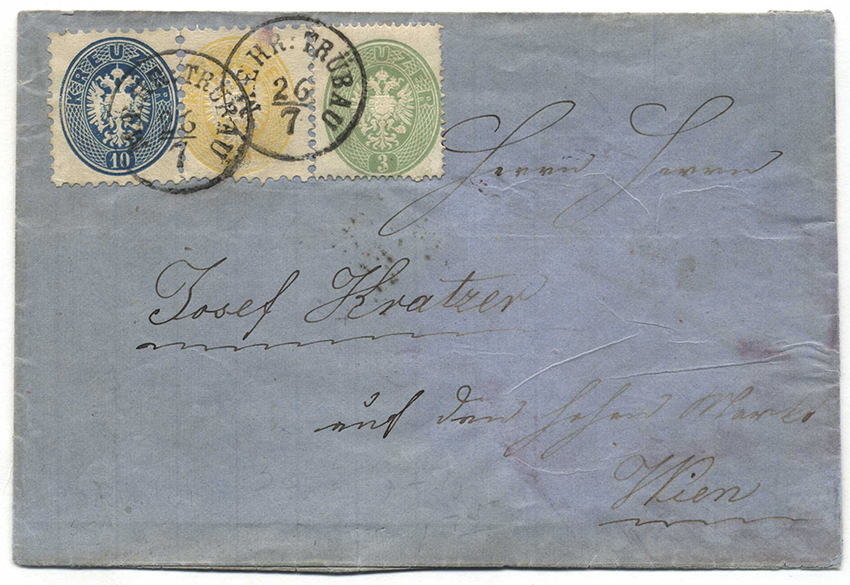 KREUZER
10
MÄHR. TRÜBAU
26
7
MÄHR: TRÜBAU
26
7
KREUZER
3
Herrn Herrn
Josef Kratzer
auf dem hohen Markt
Wien